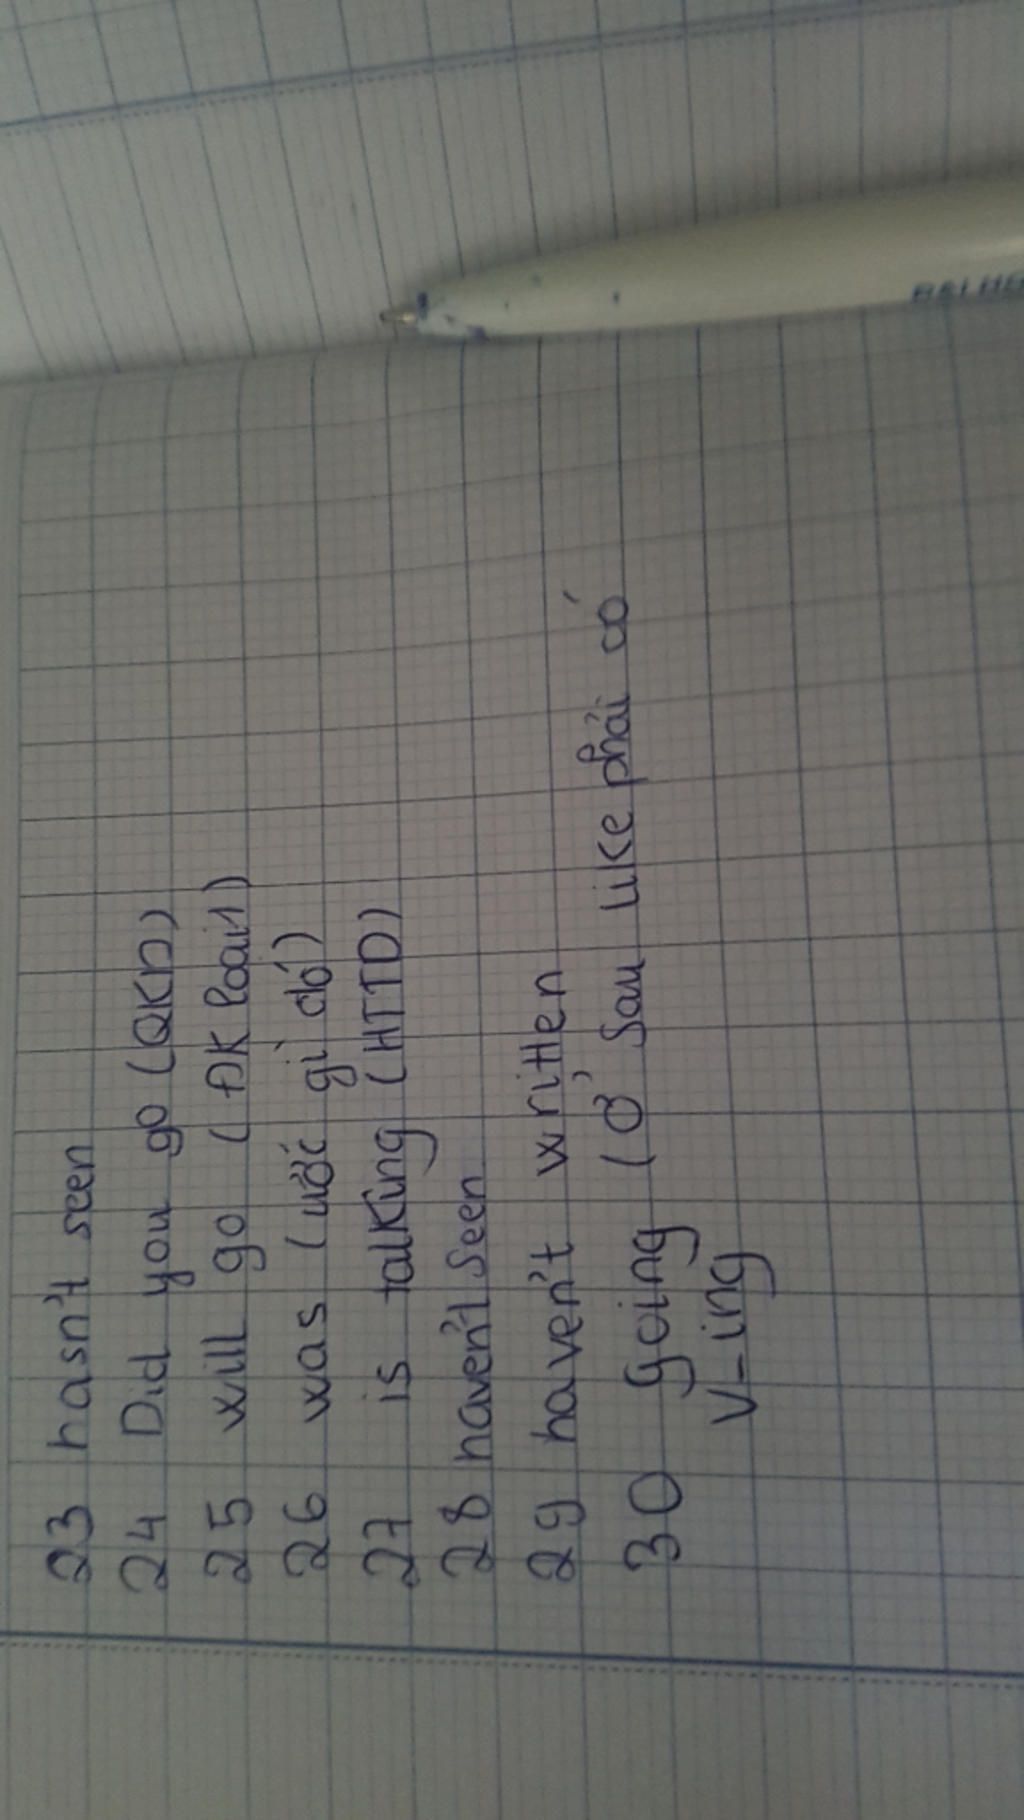 23 hasn't seen
24 Did you go (QKD)
25 will go (ĐK loại 1)
26 was (ước gì đó)
27 is talking (HTTD)
28 haven't seen
29 haven't written
30 going (ở sau like phải có
V-ing